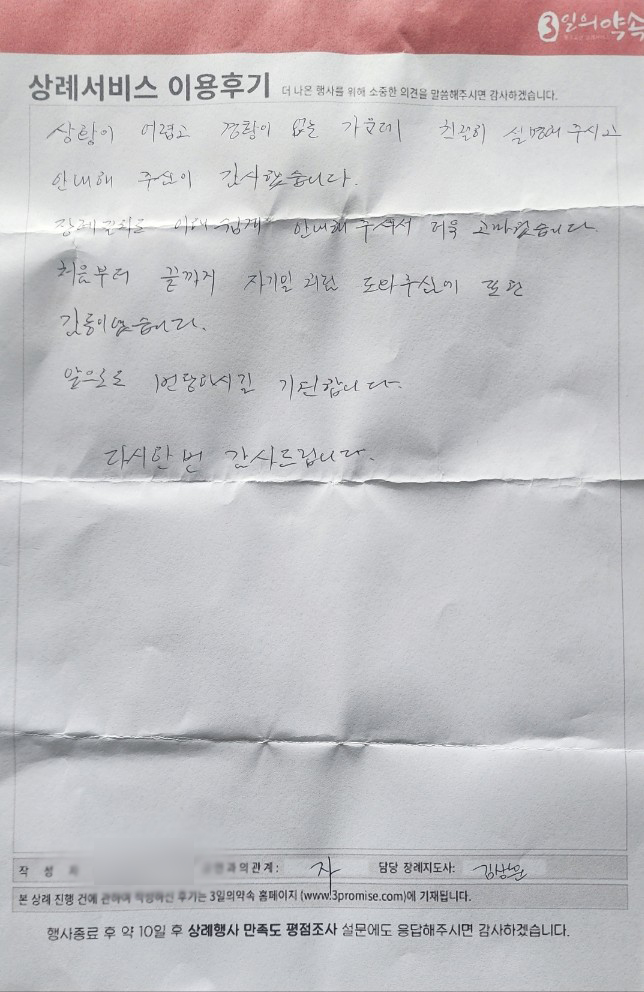 3일의약속
상례서비스 이용후기 더 나은 행사를 위해 소중한 의견을 말씀해주시면 감사하겠습니다.
상황이 어렵고 경황이 없는 가운데 친절히 설명해 주시고
안내해 주신이 감사했습니다.
장례절차를 이해 쉽게 안내해 주셔서 더욱 고마웠습니다.
처음부터 끝까지 자기일 처럼 도와주심에 또한
감동이었습니다.
앞으로도 번창하시길 기원합니다.
다시한번 감사드립니다.
작 성 과의관계: 자 담당 장례지도사: 김남운
본 상례 진행 건에 관하여 작성하신 후기는 3일의약속 홈페이지 (www.3promise.com)에 기재됩니다.
행사종료 후 약 10일 후 상례행사 만족도 평점조사 설문에도 응답해주시면 감사하겠습니다.